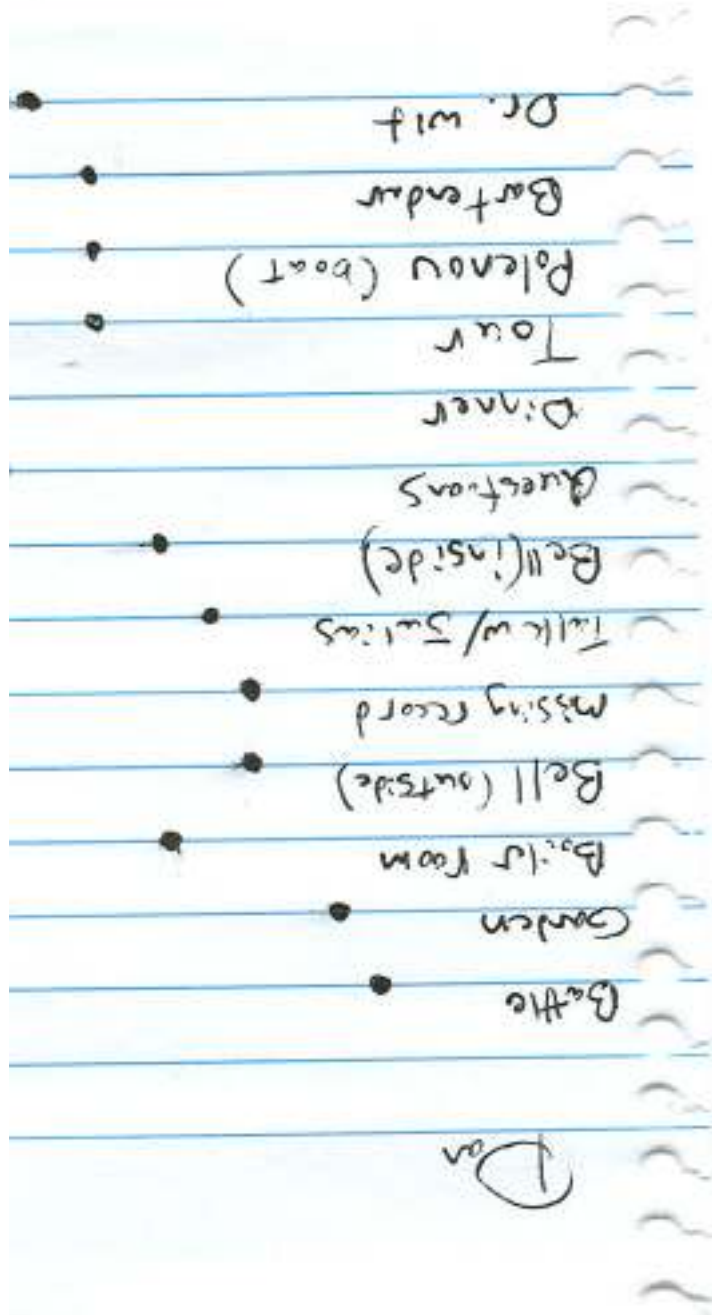 Dan
Battle
Garden
Boiler room
Bell (outside)
missing record
Talk w/ Julias
Bell (inside)
Questions
Dinner
Tour
Polenov (boat)
Bartender
Dr. Wit